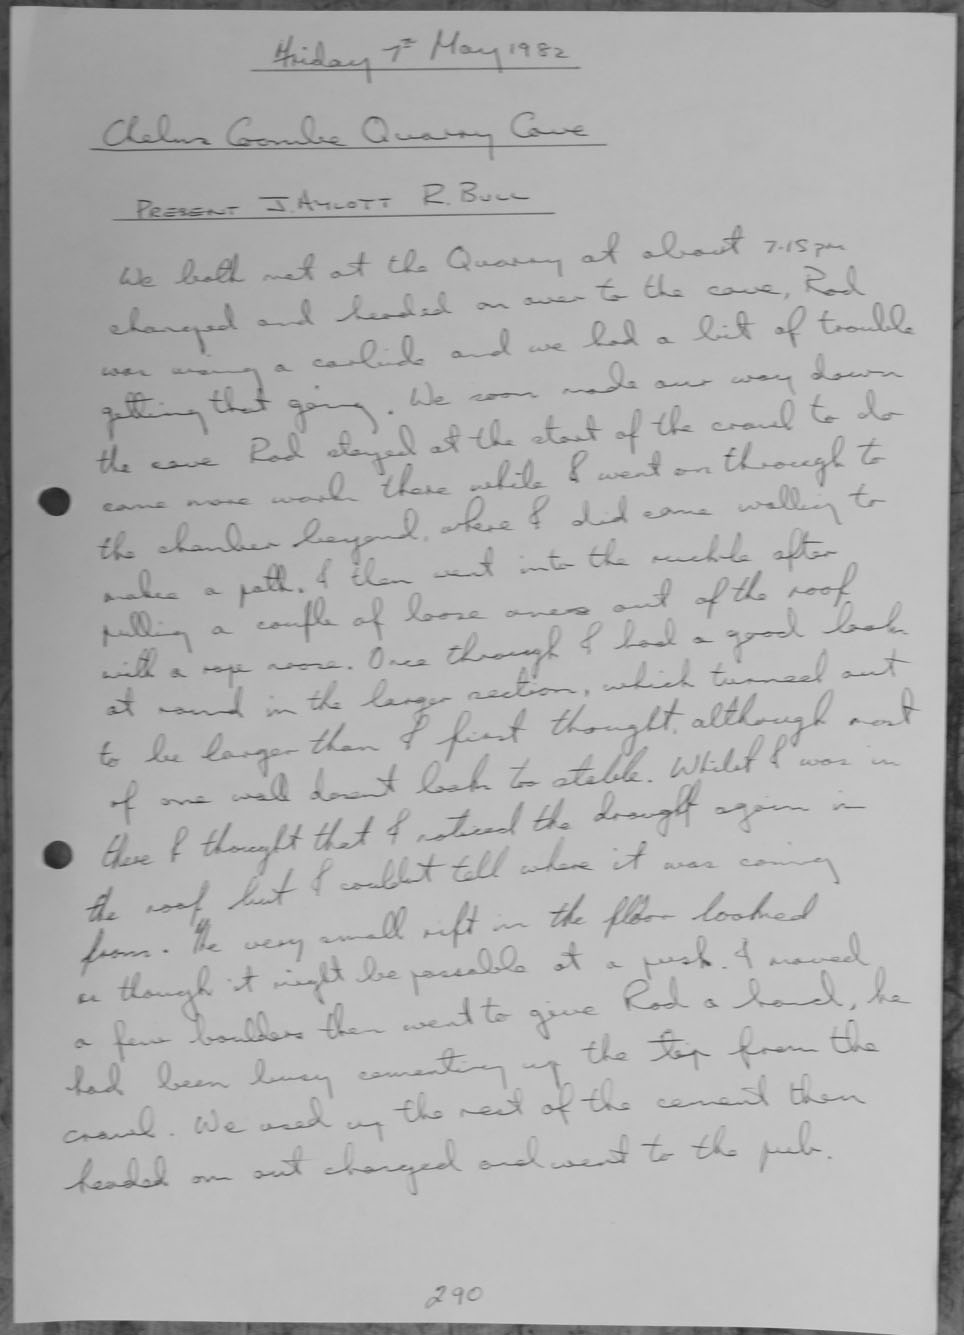 Friday 7th May 1982
Chelms Coombe Quarry Cave
PRESENT J. AYLOTT R. BULL
We both met at the Quarry at about 7.15pm
changed and headed on over to the cave, Rod
was using a carbide and we had a bit of trouble
getting that going. We soon made our way down
the cave Rod stayed at the start of the crawl to do
some more work there while I went on through to
the chamber beyond, where I did some walling to
make a path. I then went into the ruckle after
pulling a couple of loose ones out of the roof
with a rope noose. Once through I had a good look
at round in the larger section, which turned out
to be larger than I first thought, although most
of one wall dosent look to stable. Whilst I was in
there I thought that I noticed the draught again in
the roof but I couldnt tell where it was coming
from. The very small rift in the floor looked
as though it might be passable at a push. I moved
a few boulders then went to give Rod a hand, he
had been busy cementing up the top from the
crawl. We used up the rest of the cement then
headed on out changed and went to the pub.
290